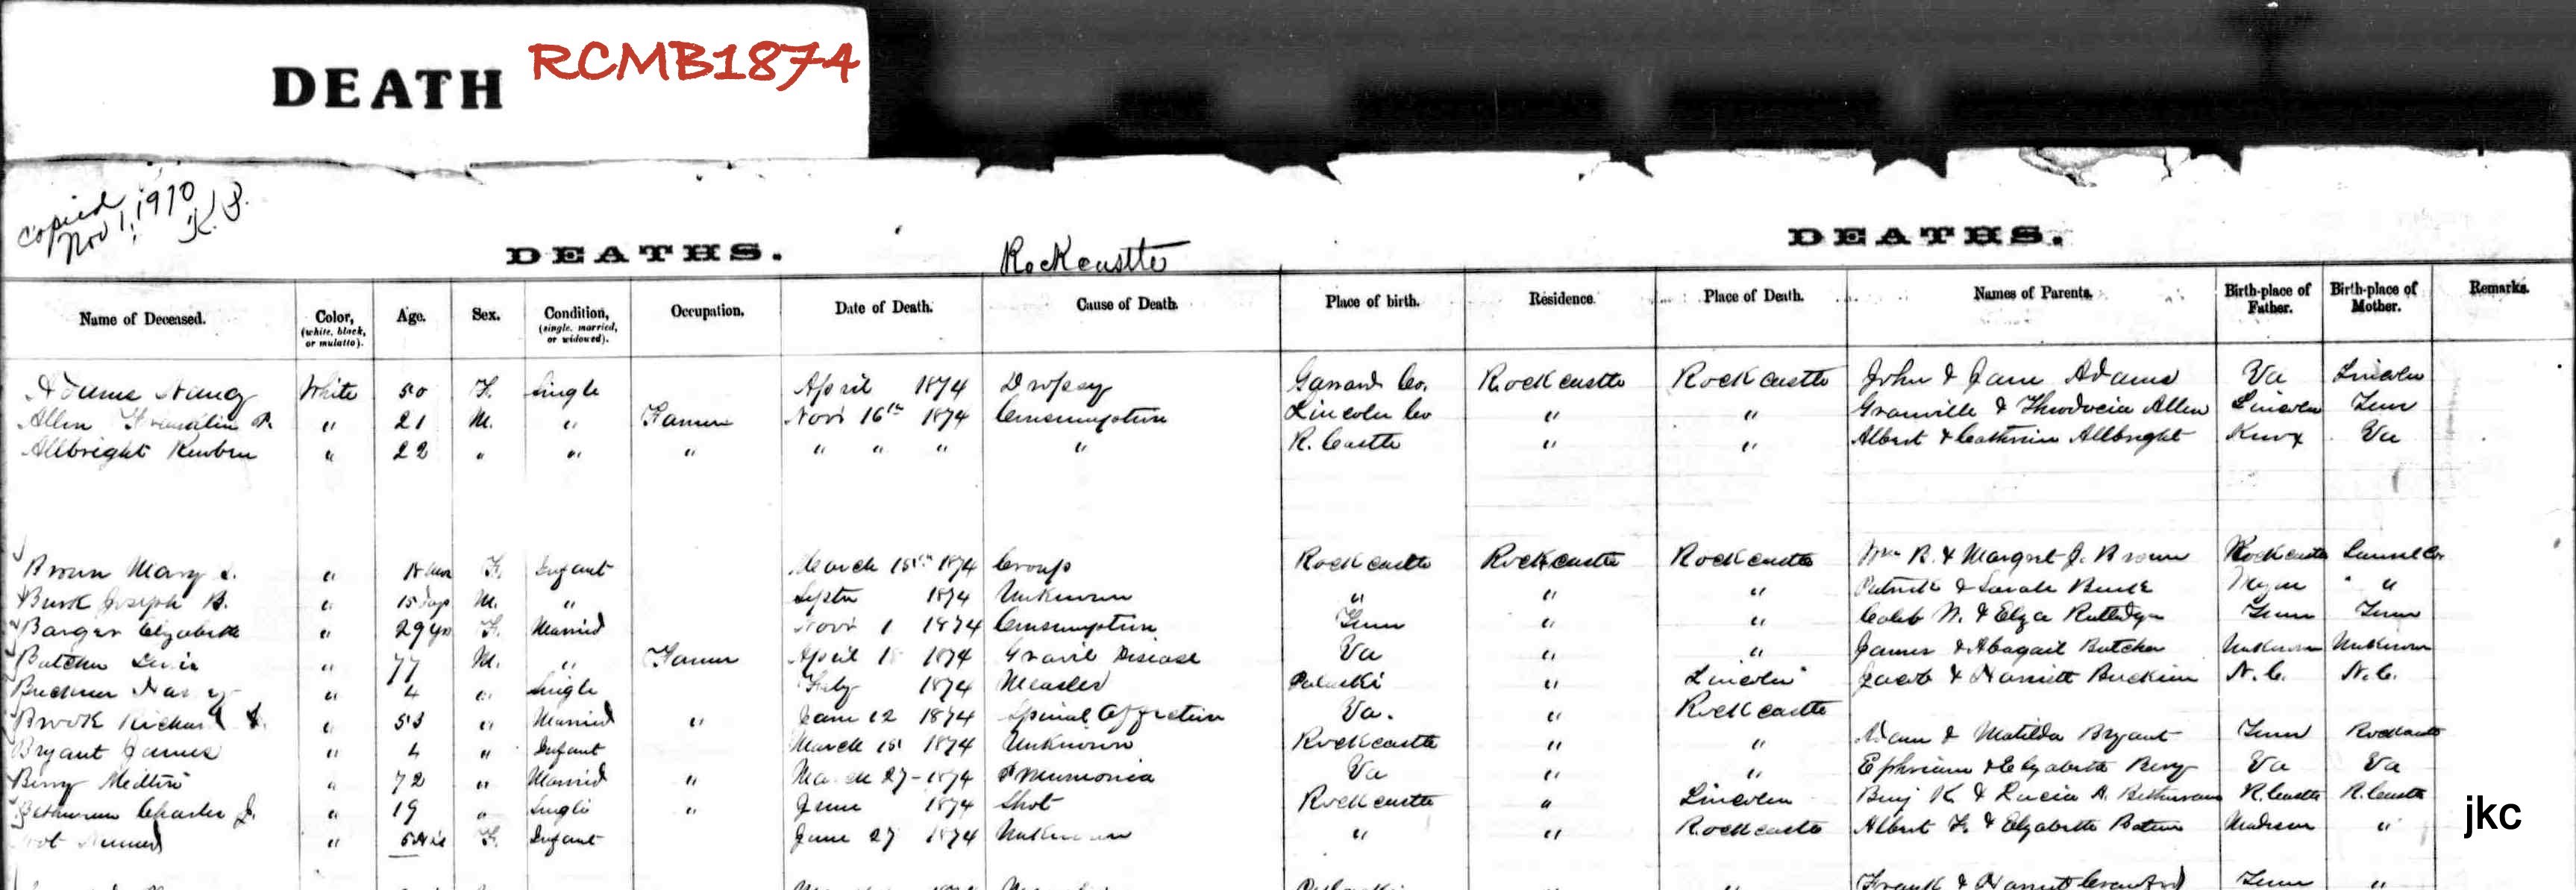 DEATH RCMB1874
Copied
Nov 1, 1910
K. B.
DEATHS. Rockcastle DEATHS.
Name of Deceased. Color, (white, black, or mulatto). Age. Sex. Condition, (single, married, or widowed). Occupation. Date of Death. Cause of Death. Place of birth. Residence. Place of Death. Names of Parents. Birth-place of Father. Birth-place of Mother. Remarks.
Adams Nancy White 50 F. Single April 1874 Dropsy Garrard Co. Rockcastle Rockcastle John & Jane Adams Va Lincoln
Allen Franklin P. " 21 M. " Farmer Novr 16th 1874 Consumption Lincoln Co " " Granville & Theodocia Allen Lincoln Tenn
Allbright Reuben " 22 " " " " " " " R. Castle " " Albert & Catherine Allbright Knox Va
Brown Mary " F. Infant March 15th 1874 Croup Rockcastle Rockcastle Rockcastle Wm B. & Margret J. Brown Rockcastle Laurel Co.
Burk Joseph B. " 15 days M. " Septr 1874 Unknown " " " Patrick & Sarah Burk " "
Barger Elizabeth " 29 yrs F. Married Novr 1 1874 Consumption Tenn " " Caleb W. & Eliza Rutledge Tenn Tenn
Butcher " 77 M. " Farmer April 1 1874 Gravil Disease Va " " James & Abagail Butcher Unknown Unknown
" 4 " Single Feby 1874 Measles Pulaski " Lincoln Jacob & Harriett N. C. N. C.
Brook Richard S. " 53 " Married " June 12 1874 Spinal Affection Va. " Rockcastle
Bryant James " 4 " Infant March 15 1874 Unknown Rockcastle " " Adam & Matilda Bryant Tenn Rockcastle
Berry " 72 " Married " March 27 - 1874 Pneumonia Va " " Ephriam & Elizabeth Berry Va Va
Bethurum Charles J. " 19 " Single " June 1874 Shot Rockcastle " Lincoln Benj K. & Lucia A. Bethurum R. Castle R. Castle
jkc
" F. Infant June 27 1874 Unknown " " Rockcastle Albert F. & Elizabeth Madison "
Pulaski " " Frank & Harriett Crawford Tenn "